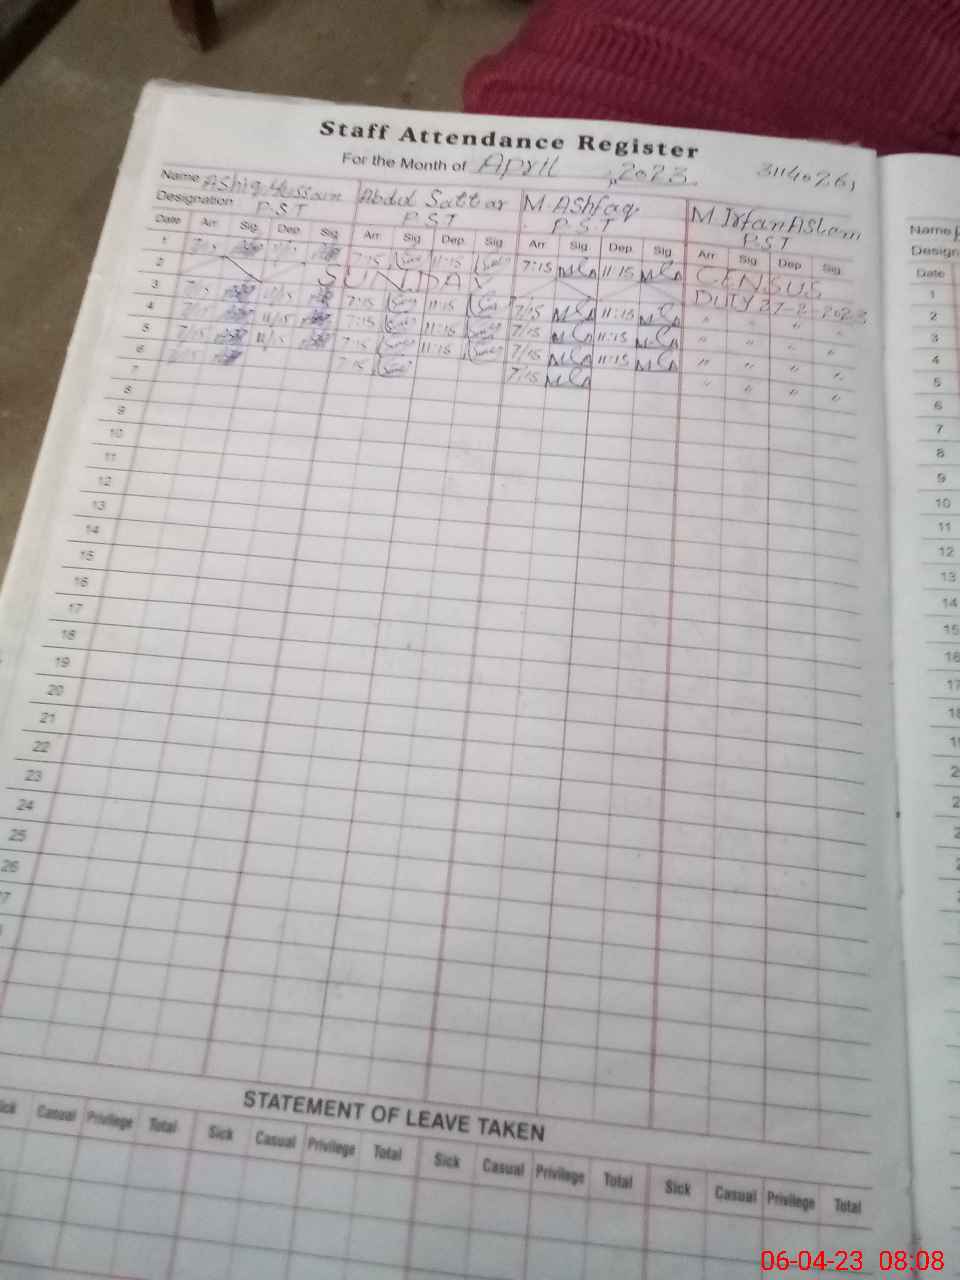 Staff Attendance Register
For the Month of April , 2023. 31140261
Name Ashiq Hussain Abdul Sattar M. Ashfaq M. Irfan Aslam
Designation P.S.T P.S.T P.S.T P.S.T
Date Arr. Sig. Dep. Sig. Arr. Sig. Dep. Sig. Arr. Sig. Dep. Sig. Arr. Sig. Dep. Sig.
1 7:15 11:15 7:15 11:15 7:15 11:15 CENSUS
2 SUNDAY DUTY 27-2-2023
3 7/15 11/15 7:15 11:15 7/15 11:15 " " " "
4 7/15 11/15 7:15 11:15 7/15 11:15 " " " "
5 7/15 11/15 7:15 11:15 7/15 11:15 " " " "
6 7/15 7:15 7/15 " " " "
7
8
9
10
11
12
13
14
15
16
17
18
19
20
21
22
23
24
25
26
STATEMENT OF LEAVE TAKEN
Casual Privilege Total Sick Casual Privilege Total Sick Casual Privilege Total Sick Casual Privilege Total
Name
Date
1
2
3
4
5
6
7
8
9
10
11
12
13
14
15
16
17
06-04-23 08:08